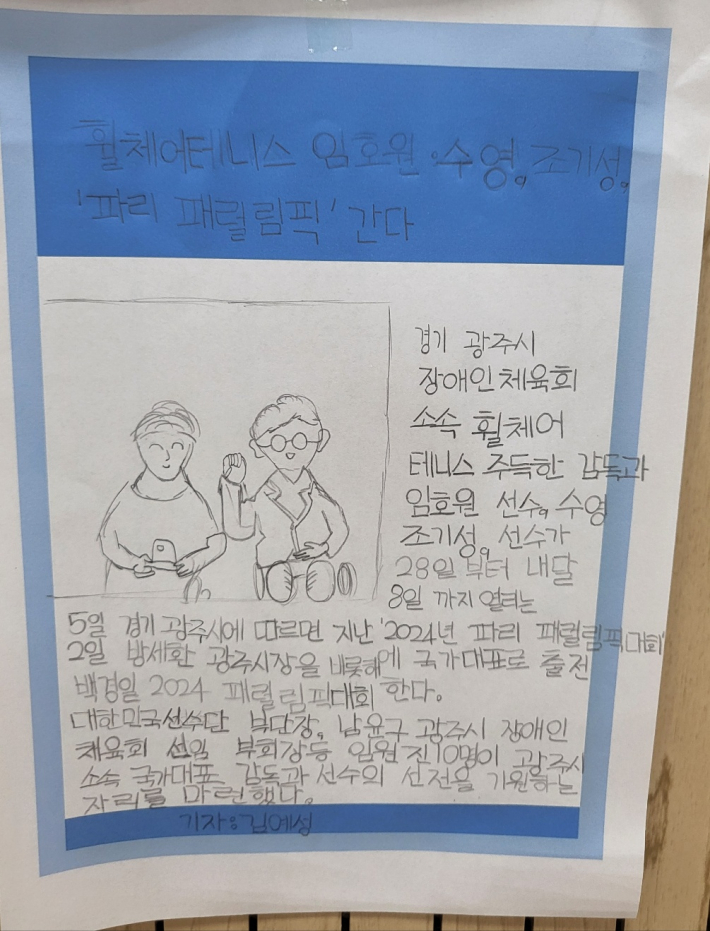 휠체어테니스 임호원·수영, 조기성,
'파리 패럴림픽' 간다
경기 광주시
장애인체육회
소속 휠체어
테니스 주득한 감독과
임호원 선수, 수영
조기성, 선수가
28일 부터 내달
8일 까지 열리는
5일 경기 광주시에 따르면 지난 '2024년 파리 패럴림픽대회'
2일 방세환 광주시장을 비롯해 에 국가대표로 출전
백경일 2024 패럴림픽대회 한다.
대한민국선수단 부단장, 남윤구 광주시 장애인
체육회 선임 부회장등 임원진10명이 광주시
소속 국가대표 감독과 선수의 선전을 기원하는
자리를 마련했다.
기자:김예성